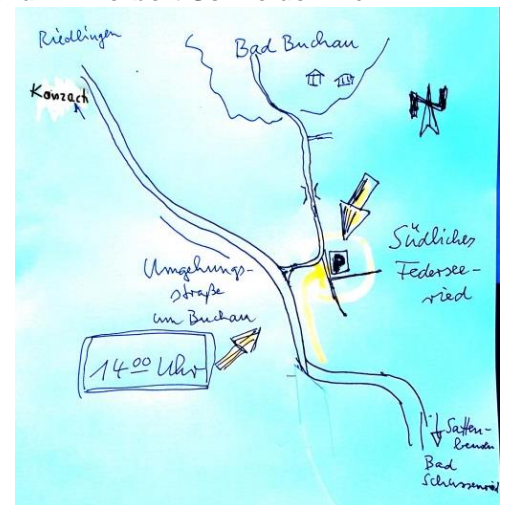 Riedlingen
Bad Buchau
Kanzach
N
P
Südliches
Federsee-
ried
Umgehungs-
straße
um Buchau
14 00 Uhr
Satten-
beuren
Bad
Schussenried